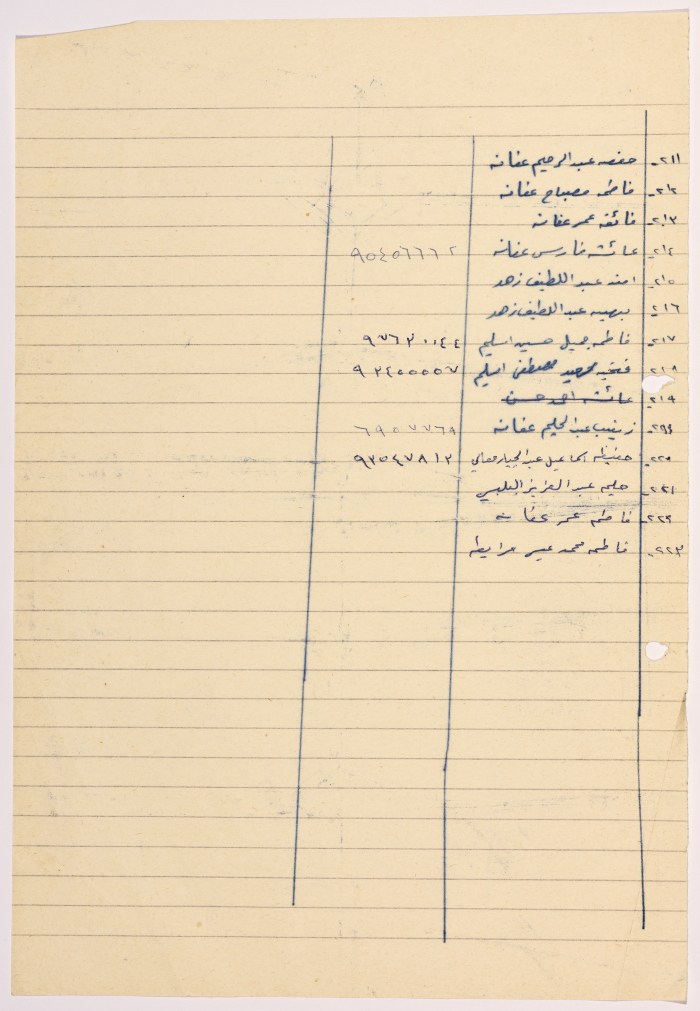 ٢١١- حفصه عبد الرحيم عفانه
٢١٢- فاطمه مصباح عفانه
٢١٣- فائقه عمر عفانه
٢١٤- عائشه فارس عفانه ٩٥٤٥٦٦٦٢
٢١٥- امنه عبد اللطيف زهد
٢١٦- بهيه عبد اللطيف زهد
٢١٧- فاطمه جميل حسين اسليم ٩٧٦٢٠٠٤٤
٢١٨- فتحيه محمد مصطفى اسليم ٩٢٤٥٥٥٥٧
٢١٩- عائشه احمد حسن
زينب عبد الحليم عفانه ٦٩٥٧٧٦٩
٢٢٠- حفيظه اسماعيل عبد الجبار معالي ٩٢٥٤٧٨١٢
٢٢١- حليمه عبد العزيز البلبيسي
٢٢٢- فاطمه عمر عفانه
٢٢٣- فاطمه محمد مرابطه